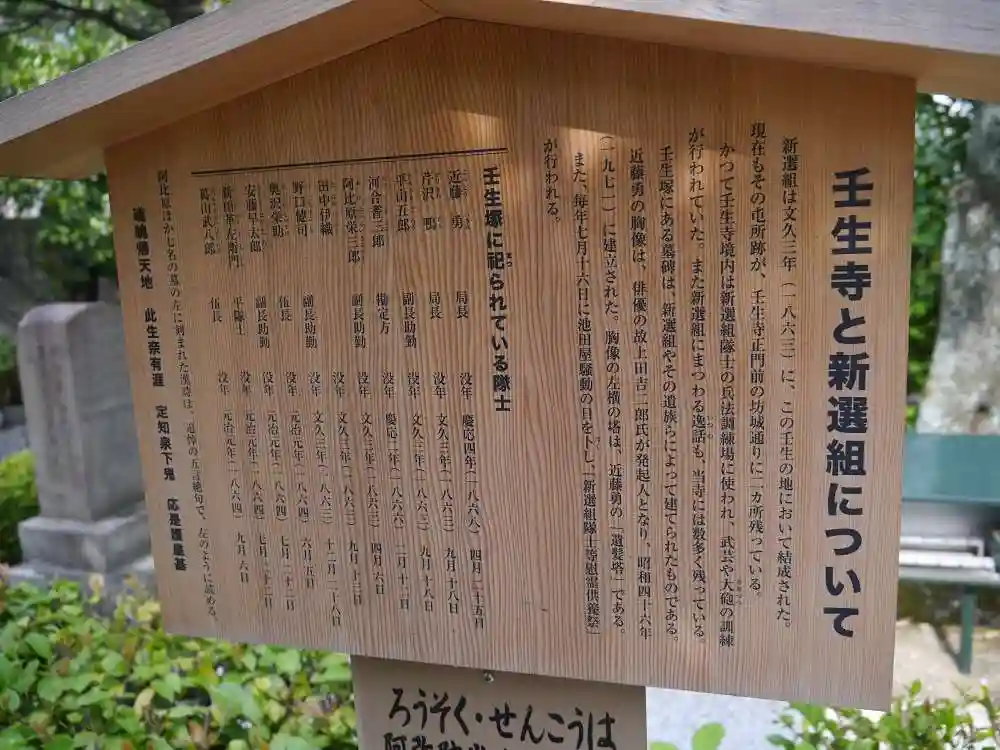 壬生寺と新選組について
新選組は文久三年（一八六三）に、この壬生の地において結成された。
現在もその屯所跡が、壬生寺正門前の坊城通りに二カ所残っている。
かつて壬生寺境内は新選組隊士の兵法訓練場に使われ、武芸や大砲の訓練
が行われていた。また新選組にまつわる逸話も、当寺には数多く残っている。
壬生塚にある墓碑は、新選組やその遺族らによって建てられたものである。
近藤勇の胸像は、俳優の故上田吉二郎氏が発起人となり、昭和四十六年
（一九七一）に建立された。胸像の左横の塔は、近藤勇の「遺髪塔」である。
また、毎年七月十六日に池田屋騒動の日を卜し、「新選組隊士等慰霊供養祭」
が行われる。
壬生塚に祀られている隊士
近藤 勇 局長 没年 慶応四年（一八六八）四月二十五日
芹沢 鴨 局長 没年 文久三年（一八六三）九月十八日
平山五郎 副長助勤 没年 文久三年（一八六三）九月十八日
河合耆三郎 勘定方 没年 慶応二年（一八六六）二月十二日
阿比原栄三郎 副長助勤 没年 文久三年（一八六三）四月六日
田中伊織 没年 文久三年（一八六三）九月十三日
野口健司 副長助勤 没年 文久三年（一八六三）十二月二十八日
奥沢栄助 伍長 没年 元治元年（一八六四）六月五日
安藤早太郎 副長助勤 没年 元治元年（一八六四）七月二十二日
新田革左衛門 平隊士 没年 元治元年（一八六四）七月二十二日
葛山武八郎 伍長 没年 元治元年（一八六四）九月六日
阿比原ほか七名の墓の左に刻まれた漢詩は、追悼の五言絶句で、左のように読める。
魂魄帰天地 此生奈有涯 定知泉下鬼 応是護皇基
ろうそく・せんこうは